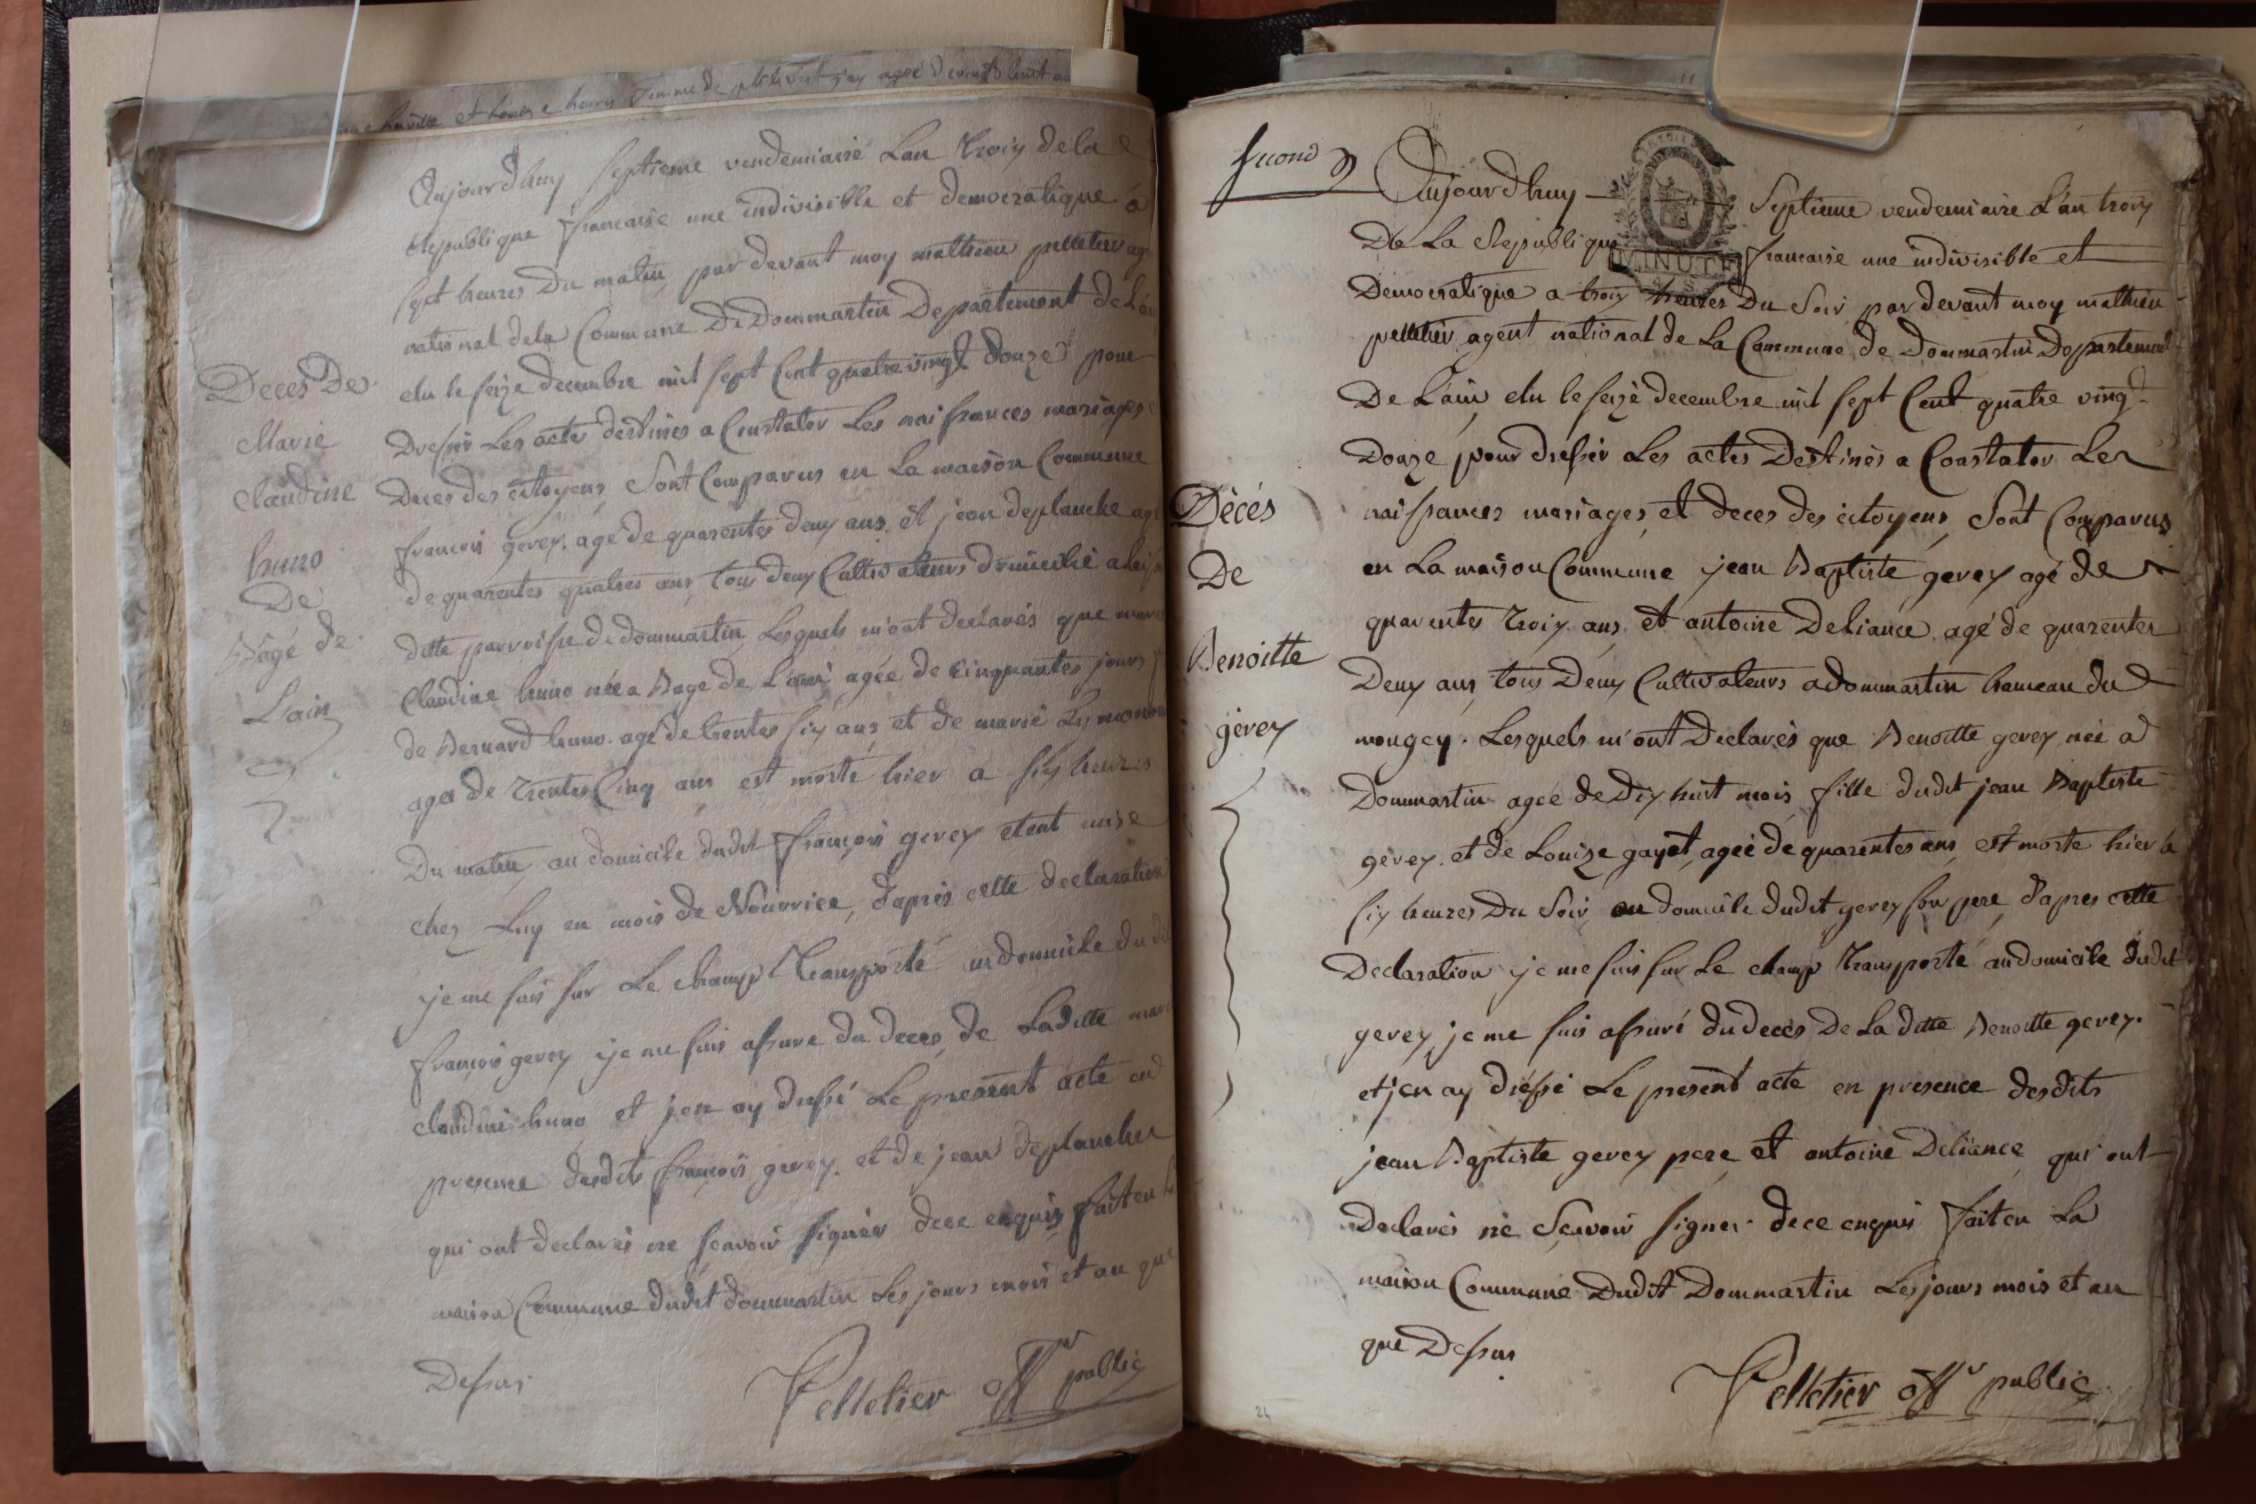 et Louise henry femme de agée de vingt huit
Aujourdhuy septieme vendemiaire L'an trois de la
Republique francaise une indivisible et democratique a
sept heures Du matin par devant moy mathieu pelletier
national dela Commune De Dommartin Departement de
elu le seize decembre mil sept Cent quatre vingt douze pour
Dresser Les actes destines a Constater Les naissances mariages
Deces des citoyens, Sont Comparus en La maison Commune
francois gerey age de quarentes deux ans et jean deplanche
de quarentes quatres ans tous deux Cultivateurs domicilié
ditte parroisse de dommartin Lesquels m'ont declarés que
Claudine huno née a Bage de L'ain agée de cinquantes jours
de Bernard huno age de trentes six ans et de marie
agée de trentes Cinq ans est morte hier a six heures
Du matin au domicile dudit francois gerey etent mise
chez Luy en mois de Nourrice, d'apres cette declaration
je me suis sur Le champ Transporté au domicile du
francois gerey je me suis assure du deces de Laditte
claudine huno et jen ay dressé Le present acte en
presence desdits francois gerey et de jean deplanche
qui ont declarés ne scavoir signer dece enquis fait en
maison Commune dudit dommartin Les jours mois et an que
Dessus
Pelletier offr public
Deces De
Marie
Claudine
huno
De
Bagé de
L'ain
second
Aujourdhuy Septieme vendemiaire L'an trois
De La Republique francaise une indivisible et
Democratique a trois heures Du Soir par devant moy mathieu
pelletier agent national de La Commune de Dommartin Departement
De L'ain elu le seize decembre mil sept Cent quatre vingt
Douze pour dresser Les actes Destinés a Constater Les
naissances mariages et deces des citoyens Sont Comparus
en La maison Commune jean Baptiste gerey agé de
quarentes trois ans et antoine Deliance agé de quarentes
Deux ans tous Deux Cultivateurs a dommartin hameau du
mougey. Lesquels m'ont Declarés que Benoitte gerey née a
Dommartin agée de Dix huit mois fille dudit jean Baptiste
gerey et de Louize gayet agée de quarentes ans est morte hier a
six heures Du Soir au domicile dudit gerey son pere, d'apres cette
Declaration je me suis sur Le champ transporté au domicile dudit
gerey je me suis assuré du decès De La ditte Benoitte gerey.
et jen ay dréssé Le present acte en presence desdits
jean Baptiste gerey pere et antoine Deliance qui ont
Declarés ne Scavoir signer dece enquis fait en La
maison Commune Dudit Dommartin Les jours mois et an
que Dessus
Pelletier offr public
Décés
De
Benoitte
gerey
MINUTE
24